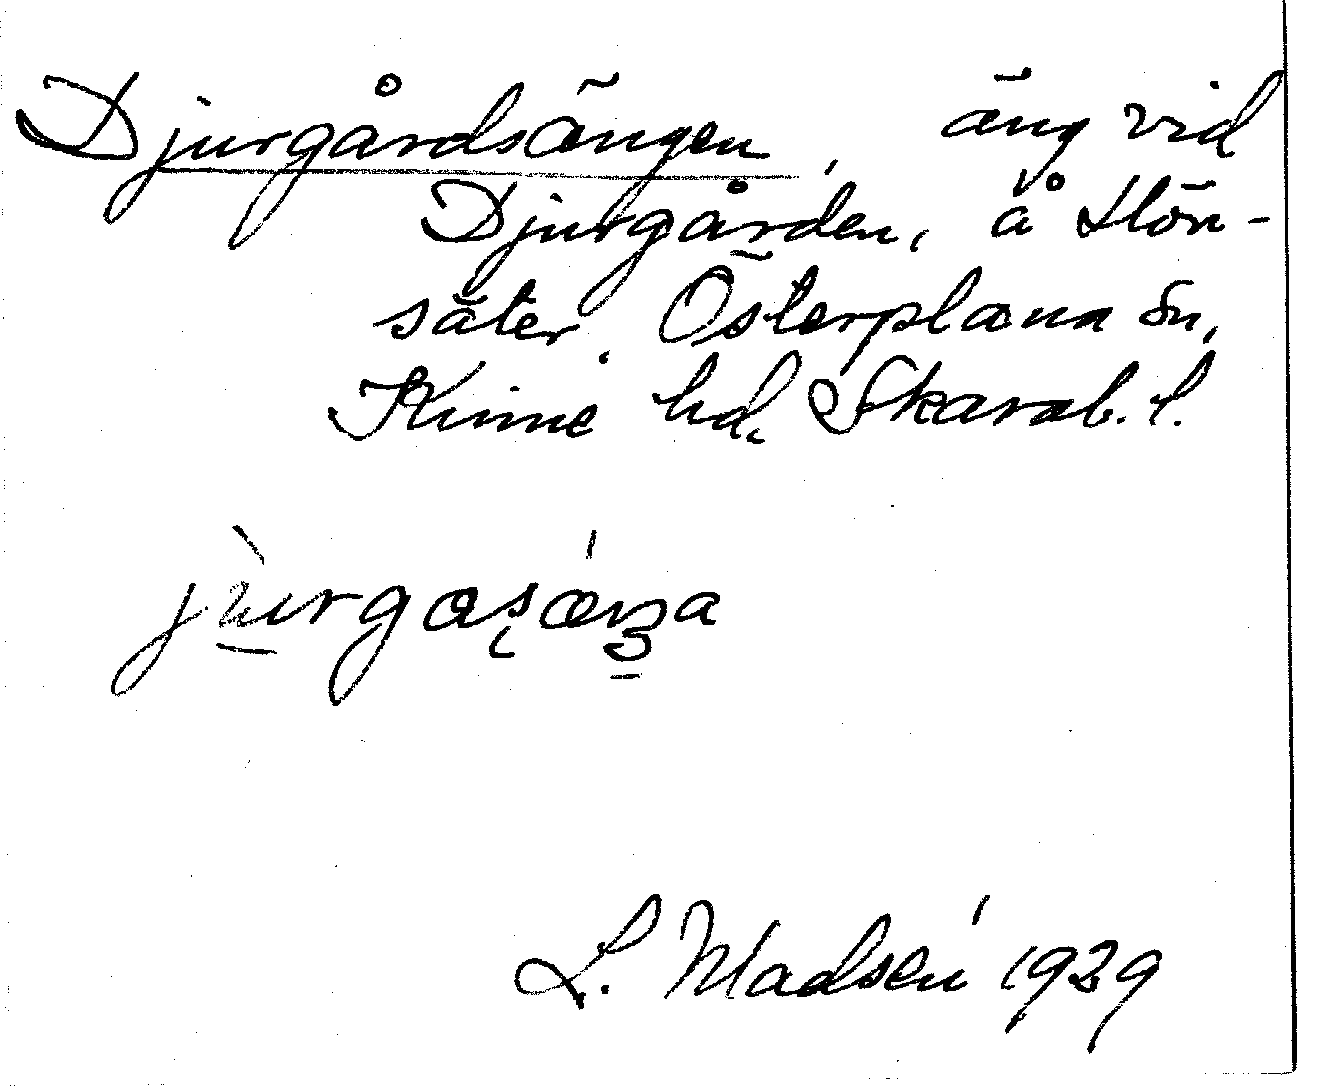 Djurgårdsängen, äng vid
Djurgården, å Hön-
säter. Österplana sn,
Kinne hd, Skarab. l.
L. Madsén 1929